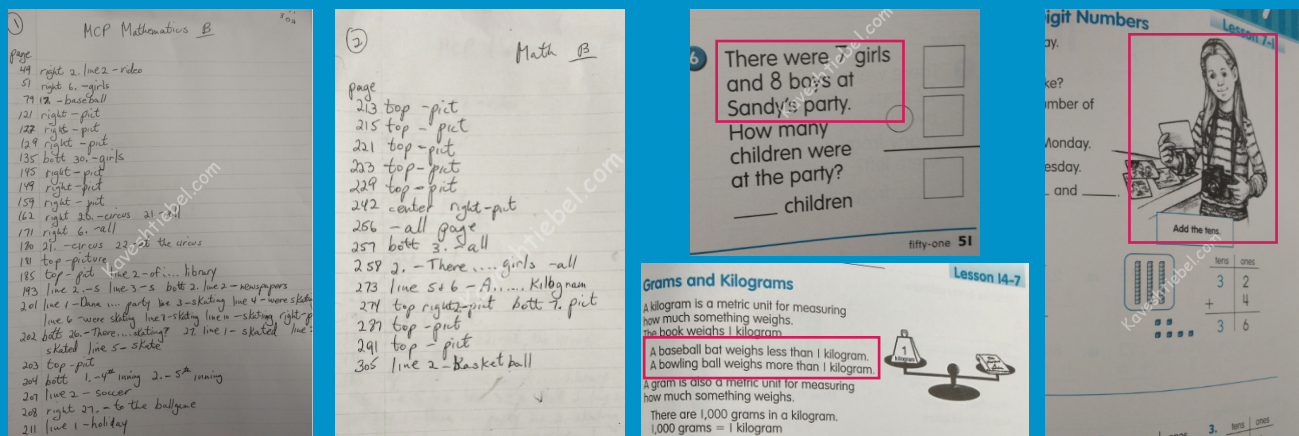 1
MCP Mathematics B
page
49 right 2. line 2 - video
51 right 6. - girls
79 12 - baseball
121 right - pict
127 right - pict
129 right - pict
135 bott 30. - girls
145 right - pict
149 right - pict
159 right - pict
162 right 20. - circus 21. - all
171 right 6. - all
180 21. - circus 22. - at the circus
181 top - picture
185 top - pict line 2 - of .... library
193 line 2. - 5 line 3 - 5 bott 2. line 2 - newspapers
201 line 1 - Dana .... party line 3 - skating line 4 - were skating
line 6 - were skating line 7 - skating line 10 - skating right - p
202 bott 26. - There .... skating? 27. line 1 - skated line
skated line 5 - skate
203 top - pict
204 bott 1. - 4th inning 2. - 5th inning
207 line 2 - soccer
208 right 27. - to the ballgame
211 line 1 - holiday
2
Math B
page
213 top - pict
215 top - pict
221 top - pict
223 top - pict
229 top - pict
242 center right - pict
256 - all page
257 bott 3. - all
258 2. - There .... girls - all
273 line 5 + 6 - A ...... kilogram
274 top right - pict bott 7. pict
287 top - pict
291 top - pict
305 line 2 - Basketball
6
There were 7 girls
and 8 boys at
Sandy's party.
How many
children were
at the party?
____ children
fifty-one 51
Grams and Kilograms
Lesson 14-7
A kilogram is a metric unit for measuring
how much something weighs.
The book weighs 1 kilogram.
A baseball bat weighs less than 1 kilogram.
A bowling ball weighs more than 1 kilogram.
A gram is also a metric unit for measuring
how much something weighs.
There are 1,000 grams in a kilogram.
1,000 grams = 1 kilogram
1
kilogram
igit Numbers
Lesson 7-1
ay.
ke?
mber of
Monday.
esday.
_ and ____.
Add the tens.
tens ones
3 2
+ 4
3 6
3. tens ones
Kaveshtiebel.com
Kaveshtiebel.com
Kaveshtiebel.com
Kaveshtiebel.com
Kaveshtiebel.com